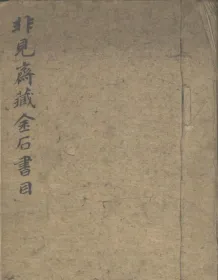 非見齋藏金石書目